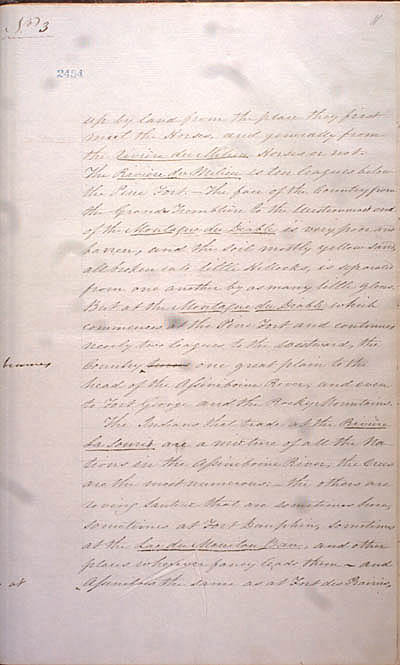 No 3
2454
up by land from the place they first
meet the Horses, and generally from
the rivière du Milieu Horses or not.
The Rivière du Milieu is ten leagues below
the Pine Fort. — The face of the Country from
the Grande Tremblière to the Westernmost end
of the Montagne du Diable is very poor and
barren, and the soil mostly yellow sand,
all broken into little Hillocks, is separated
from one another by as many little glens.
But at the Montagne du Diable which
commences at the Pine Fort and continues
nearly two leagues to the westward, the
becomes
Country one great plain to the
head of the Assiniboine River, and even
to Fort George and the Rocky Mountains.
The Indians that trade at the Rivière
la Souris are a mixture of all the Na
tions in the Assiniboine River, the Crees
are the most numerous — the others are
roving Sauteux that are sometimes here,
sometimes at Fort Dauphin, sometimes
at the Lac du Manitou Ban, and other
places wherever fancy leads them — and
at
Assiniboils the same as at Fort des Prairies,